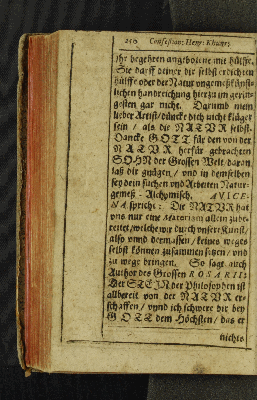 250 Confession: Henr: Khunr:
jhr begehren angebotene mit hülffe.
Sie darff deiner dir selbst erdichten
hülffe oder der Natur vngemeß künst-
lichen handreichung hierzu im gering-
gosten gar nicht. Darumb mein
lieber Artist/ düncke dich nicht klüger
sein / als die NATUR selbst.
Dancke GOTT für den von der
NATUR herfür gebrachten
SOHN der Grossen Welt daran
laß dir gnügen / vnd in demselben
sey dein suchen vnd Arbeiten Natur-
gemeß-Alchymisch. AVICE-
NA spricht: Die NATUR hat
vns nur eine Materiam allein zube-
reitet/ welche wir durch vnsere Kunst/
also vnnd dermassen / keines weges
selbst können zusammen setzen / vnd
zu wege bringen. So sagt auch
Author des Grossen ROSARII:
Der STEIN der Philosophen ist
allbereit von der NATUR er-
schaffen / vnnd ich schwere dir bey
GOTT dem Höchsten / das er
nichts